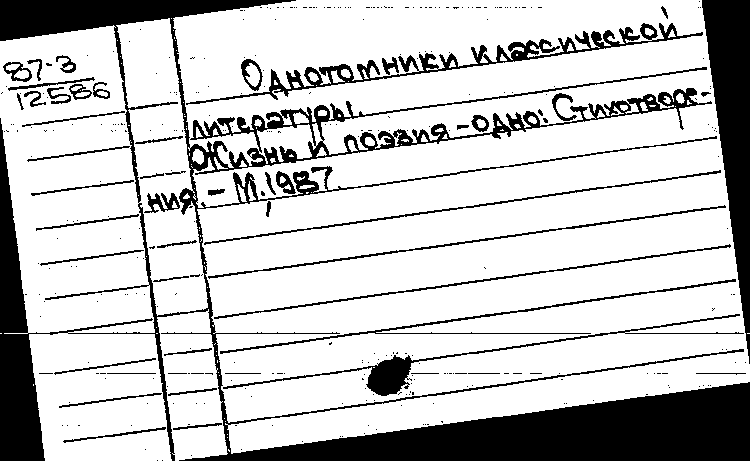 87-3
12586
Однотомники классической
литературы.
Жизнь и поэзия - одно: Стихотворе-
ния. - М., 1987.